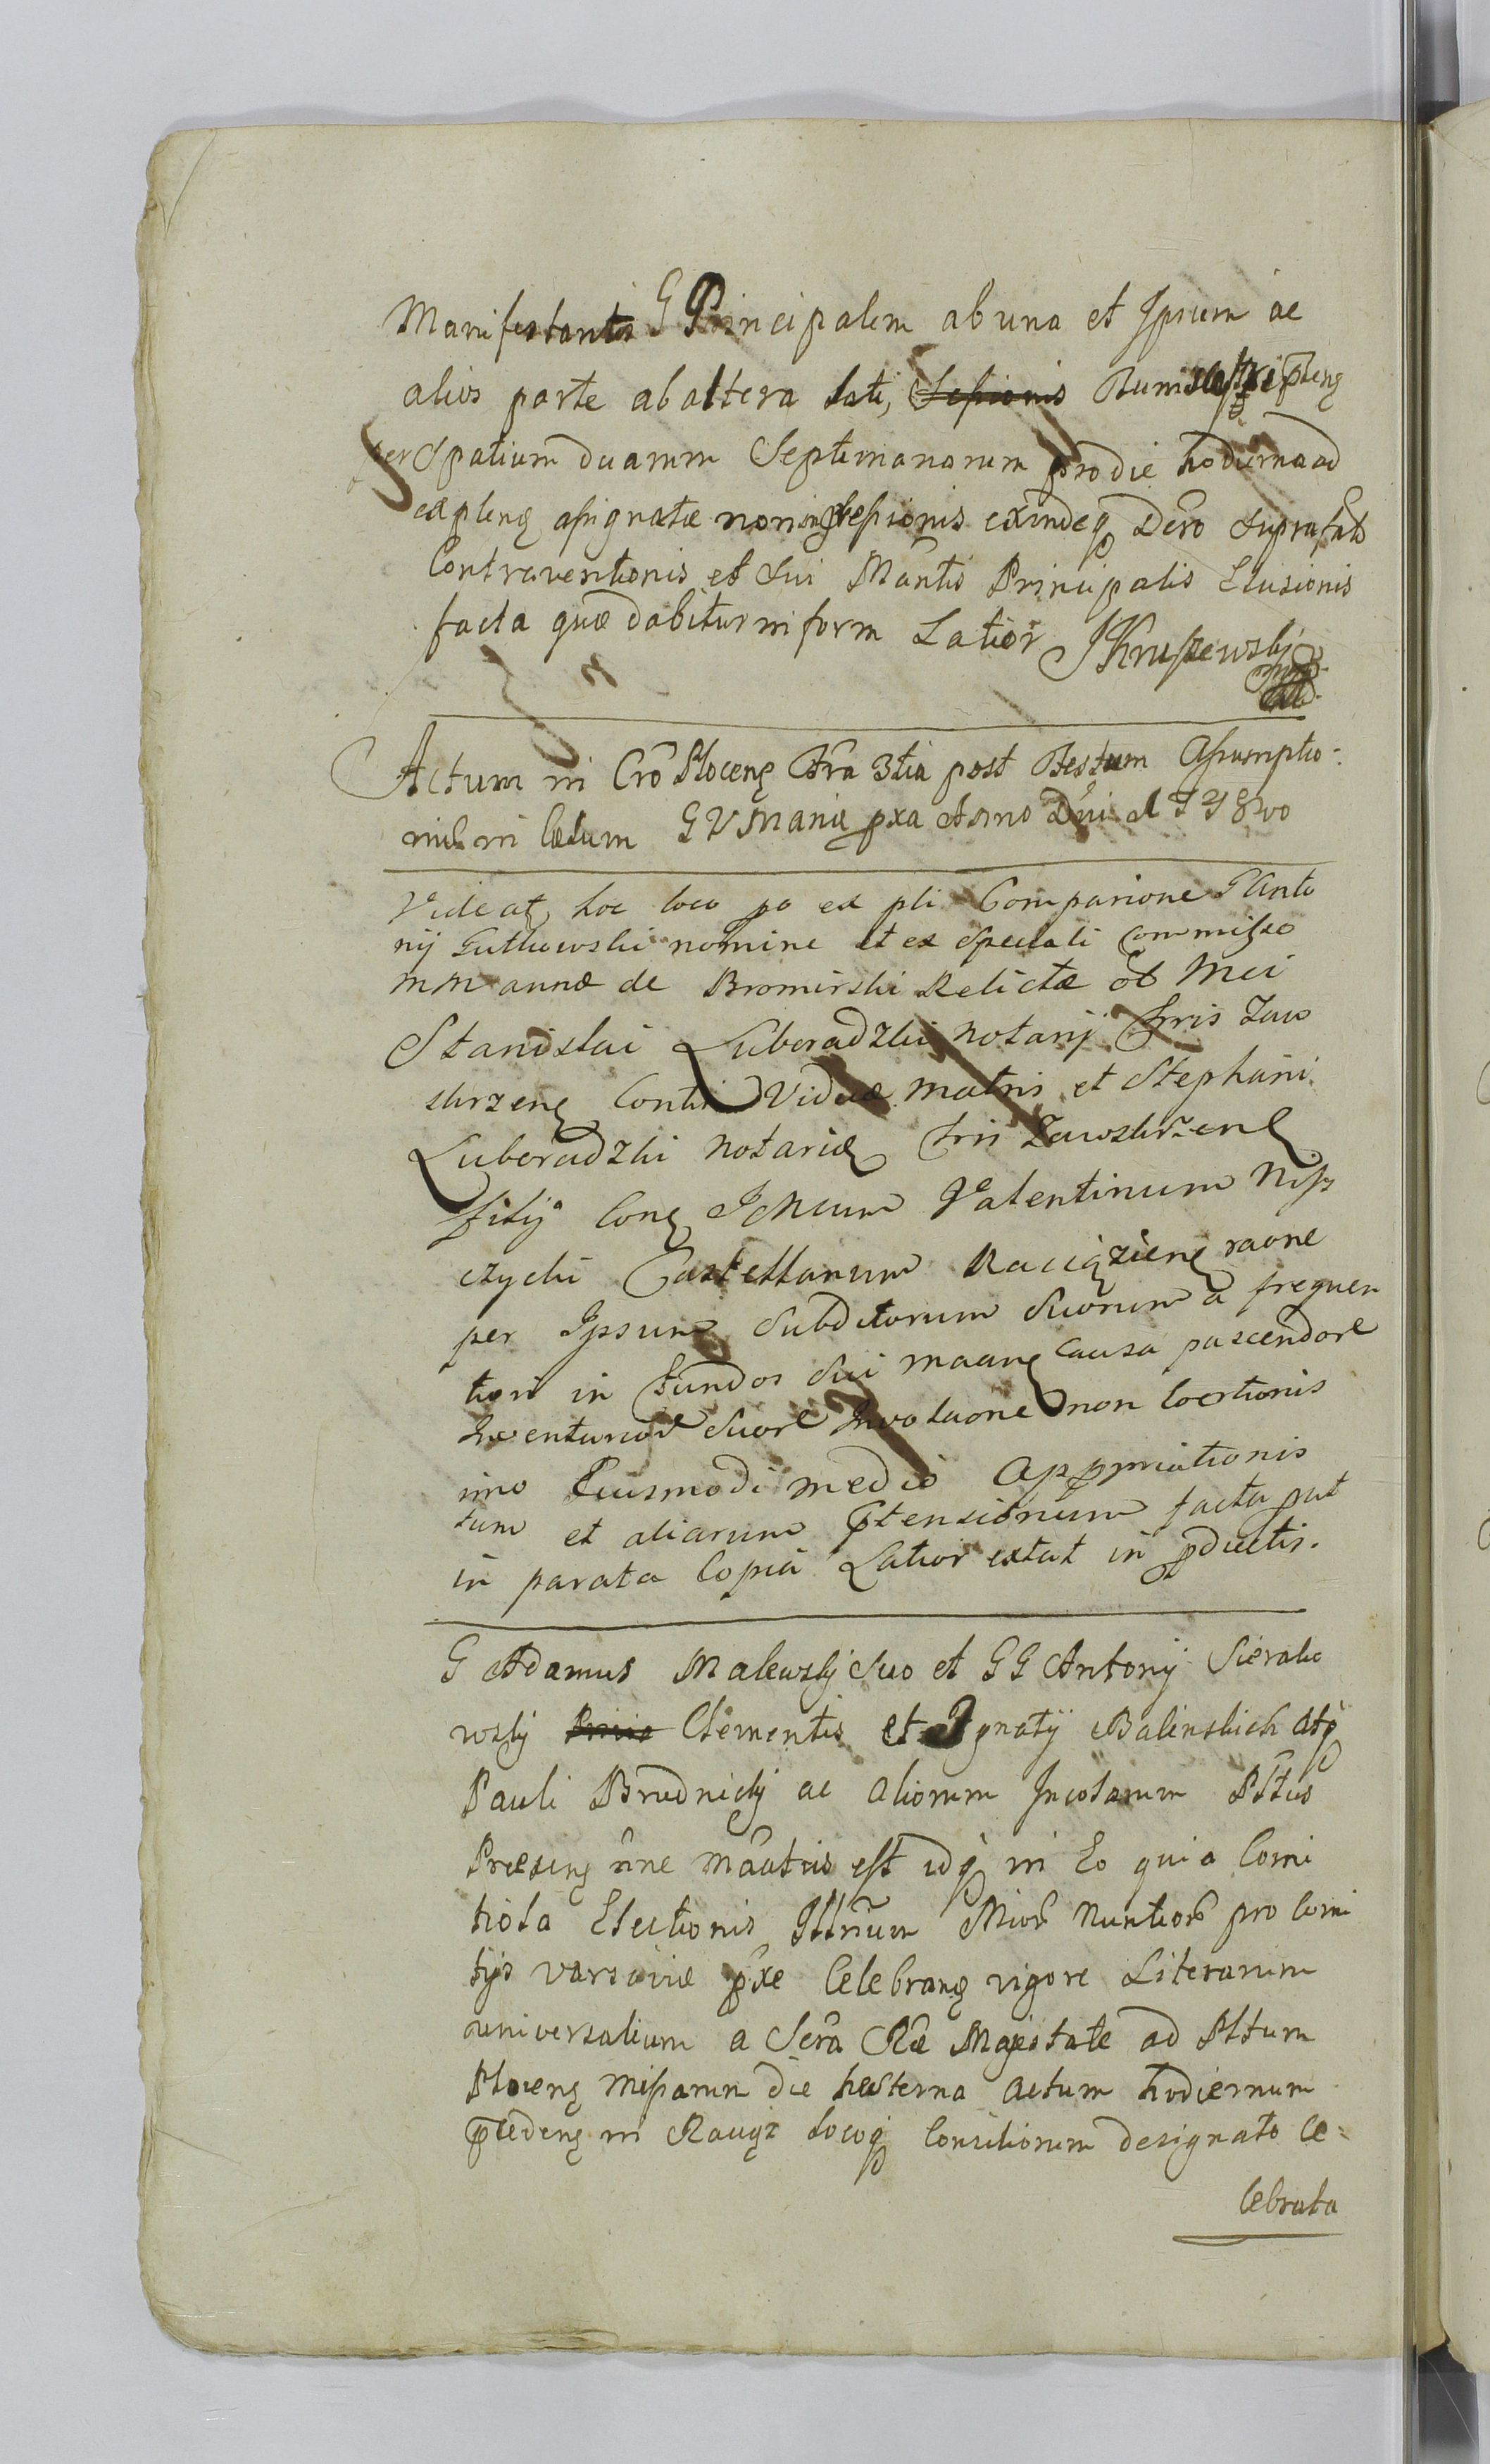 Manifestantis G Principalem ab una et Ipsum ac
alios parte ab altera lati,
per Spatium duarum Septimanarum pro die hodierna ad
explenḡ assignatæ non ingressionis exindeqȝ Dcro suprafato
Contraventionis et sui Mantis Principalis Elusionis
facta quæ dabitur in form Latior JKruszewskj
Actum in Cro Plocenȝ Fra 3tia post Festum Assumptio-
nis in Cælum G V Mariæ pxa Anno Dni 1778vo
Videatȝ hoc loco po ex pli Comparione G Anto
nij Gutkowski nomine et ex speciali commisso
M M annæ de Bromirski Relictæ ol Mci
Stanislai Luboradzki notarij Trris Zaw
skrzenȝ Contr Viduæ matris et Stephani
Luboradzki notariȝ Trris Zawskrzenȝ
filij Conȝ IMcum Valentinum Nisz
czycki Castellanum Raciązienȝ raone
per Ipsum Subditorum suorum a frequen
tion in fundos sui maang causa pascendore
Inventariore suore Involaone non coertionis
imo Eiusmodi medio Appropriationis
tum et aliarum Ptensionum facta put
in parata Copia Latior extat in pductis.
G Adamus Malewskj suo et GG Antonij Sierako
wskj Clementis et Ignatij Balinskich atqȝ
Pauli Brudnickj ac aliorum Incolarum Pltus
Præsenȝ nne mantus est idqȝ in Eo quia Comi
tiola Electionis Illrium Mior Nuntior pro Comi
tijs varsaviæ pxe Celebranȝ vigore Literarum
universalium a Sera Ræ Majestate ad Pltum
Plocenȝ missarum die hesterna actum hodiernum
præcedenȝ in Raciąz locoqȝ Consiliorum designato Ce=
lebrata